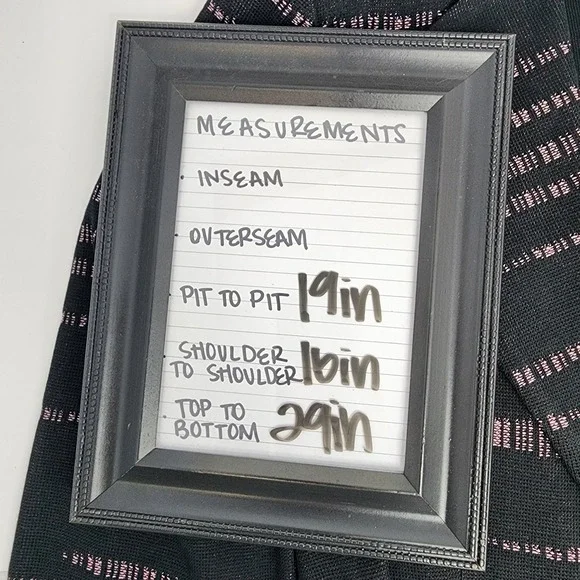 MEASUREMENTS
· INSEAM
· OUTERSEAM
· PIT TO PIT 19in
· SHOULDER
TO SHOULDER 16in
· TOP TO
BOTTOM 29in